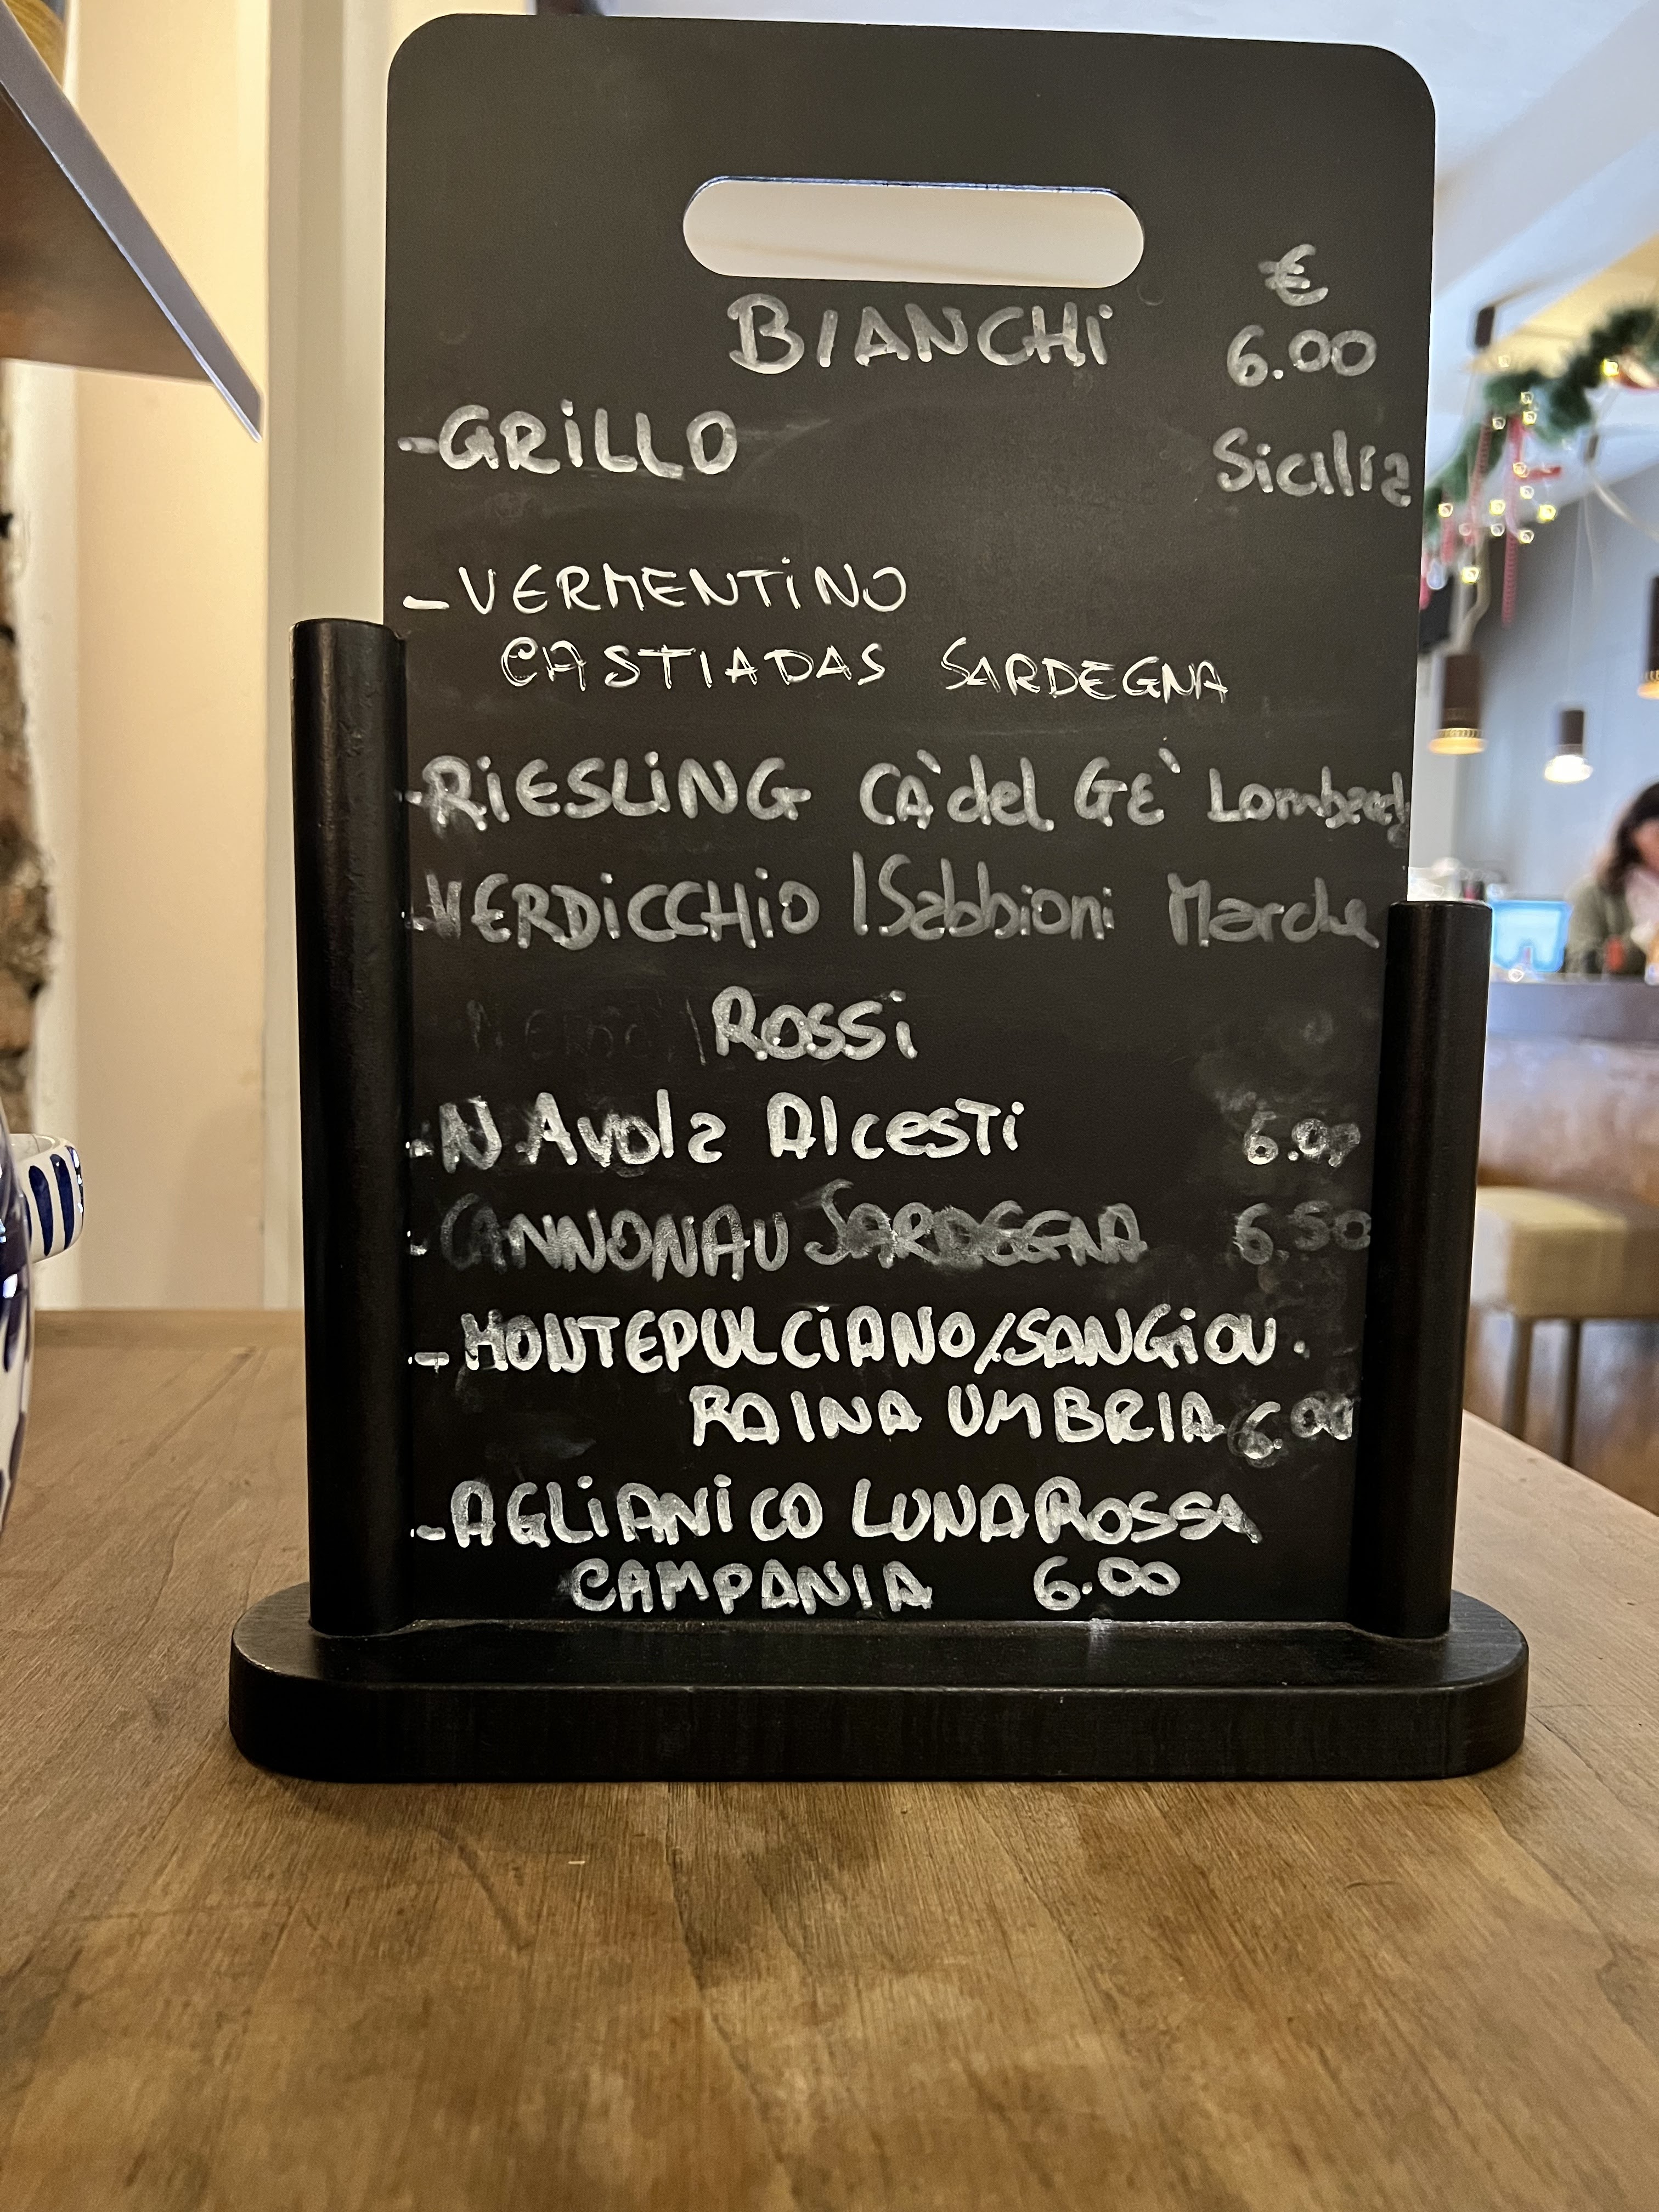 €
BIANCHi 6.00
-GRiLLO Sicilia
-VERMENTiNO
CASTIADAS SARDEGNA
-RiESLiNG CÀ del GÈ
VERDiCCHiO I Sabbioni Marche
ROSSi
-N Avola AlcesTi 6.00
-CANNONAU SARDEGNA 6.50
-MONTEPULCiANO/SANGiOV.
RAINA UMBRIA 6.00
-AGLiANiCO LUNAROSSA
CAMPANIA 6.00